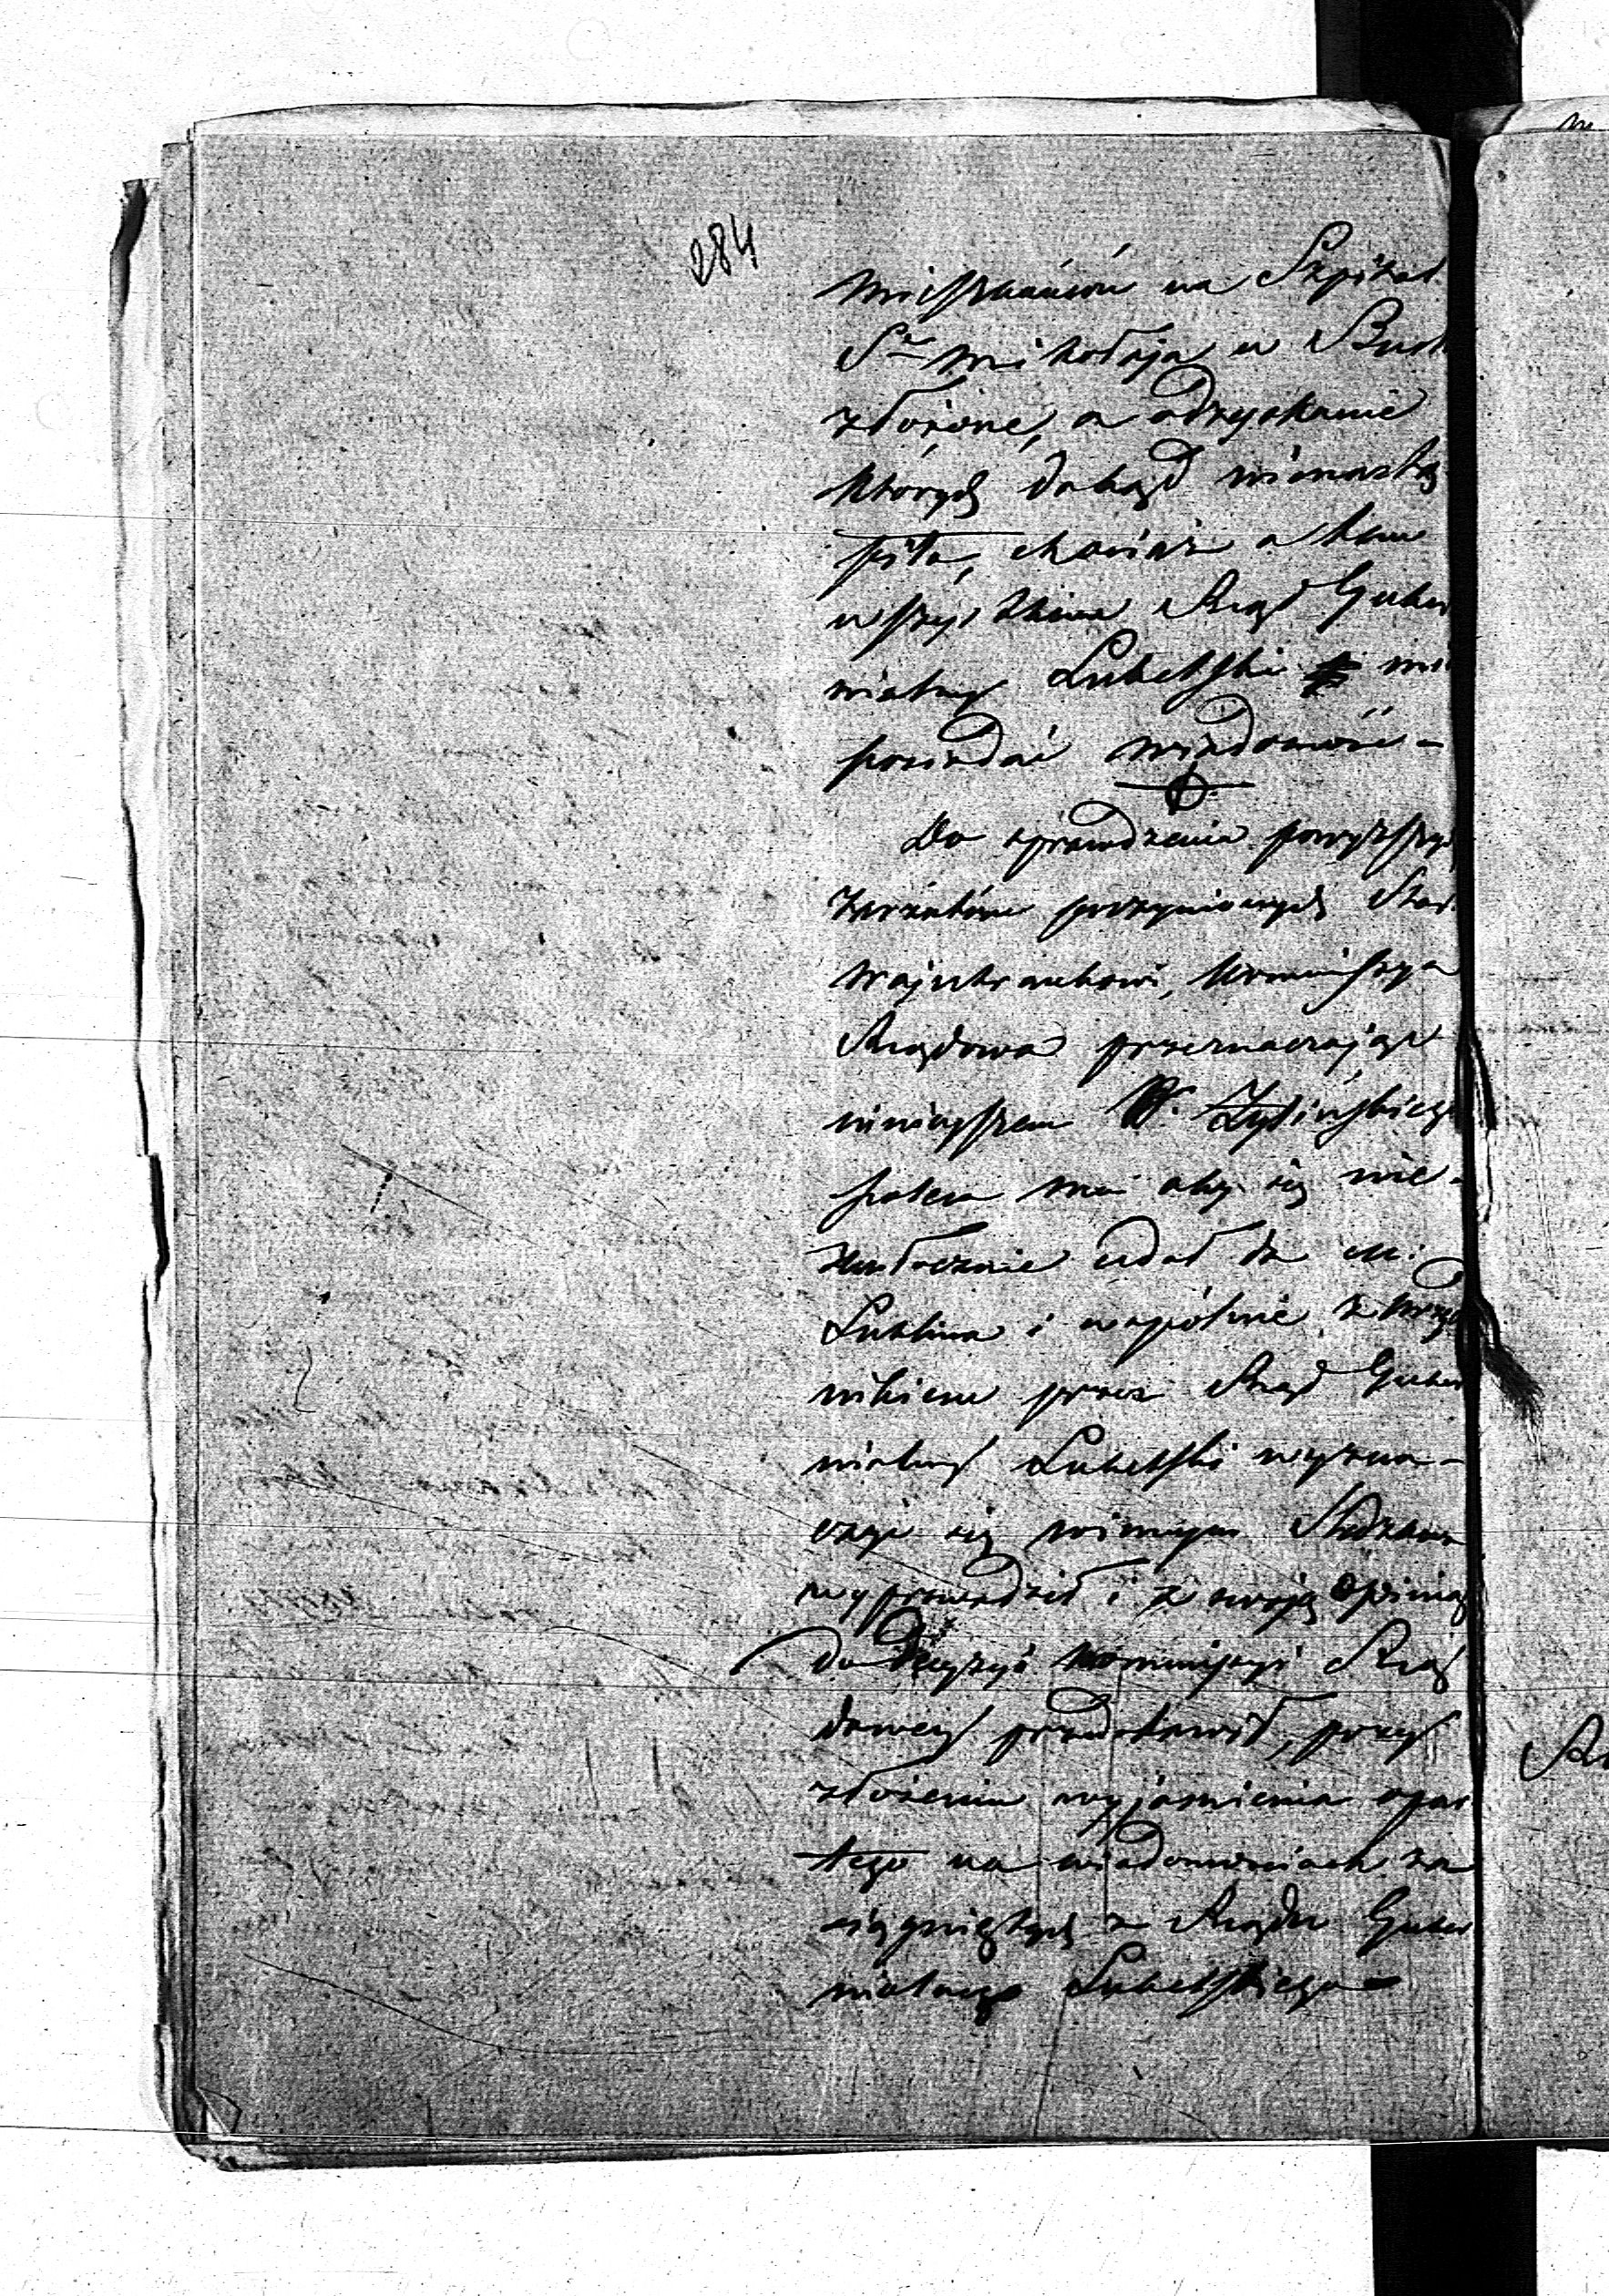 284
Mieszkańców na Szpital
Sgo Mikołaja w Busk
złożone, a odzyskanie
których dokąd nienastą
piło, chociaż o tem
wszystkiem Rząd Guber
nialny Lubelski mi
posiadać wiadomość -
Do sprawdzenia powyższych
zarzutów poczynionych
Kommissya
Rządowa przeznaczając
niniejszem W.
poleca mu aby się nie-
zwłocznie udał do M.
Lublina i wspólnie z Urzęd
nikiem przez Rząd Guber
nialny Lubelski wyzna-
czyć się winnym Śledztwo
wyprowadził i z swoją opinią
do Decyzyi Kommissyi Rzą
dowey przedstawił, przy
złożeniu wyjaśnienia opar
tego na wiadomościach za
ciągniętych z Rządu Guber
nialnego Lubelskiego